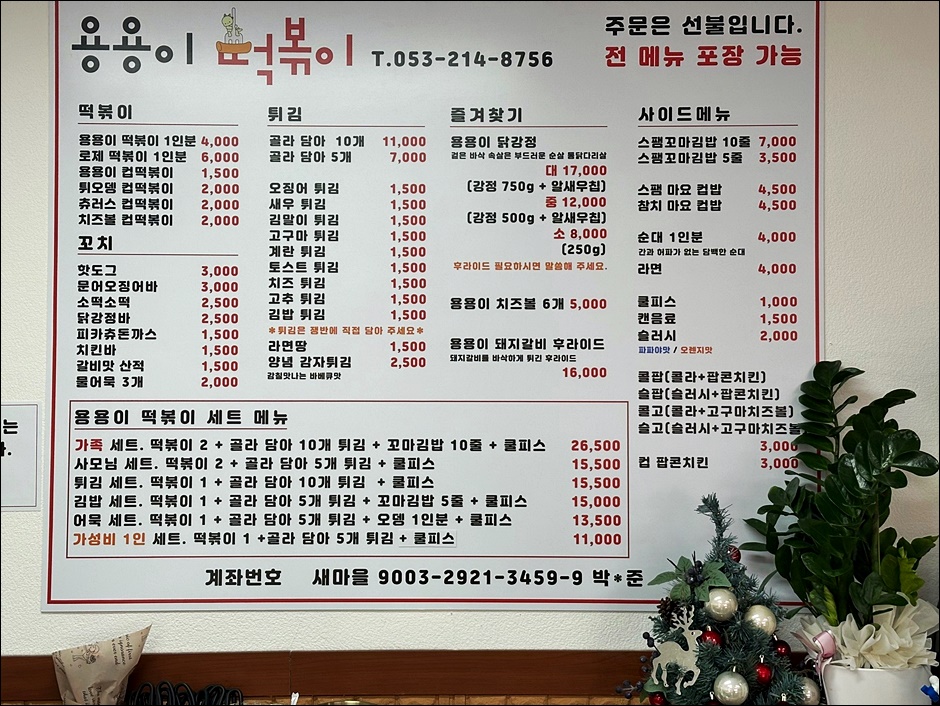 용용이 떡볶이 T.053-214-8756
주문은 선불입니다.
전 메뉴 포장 가능
떡볶이
용용이 떡볶이 1인분 4,000
로제 떡볶이 1인분 6,000
용용이 컵떡볶이 1,500
튀오뎅 컵떡볶이 2,000
츄러스 컵떡볶이 2,000
치즈볼 컵떡볶이 2,000
꼬치
핫도그 3,000
문어오징어바 3,000
소떡소떡 2,500
닭강정바 2,500
피카츄돈까스 1,500
치킨바 1,500
갈비맛 산적 1,500
물어묵 3개 2,000
튀김
골라 담아 10개 11,000
골라 담아 5개 7,000
오징어 튀김 1,500
새우 튀김 1,500
김말이 튀김 1,500
고구마 튀김 1,500
계란 튀김 1,500
토스트 튀김 1,500
치즈 튀김 1,500
고추 튀김 1,500
김밥 튀김 1,500
*튀김은 쟁반에 직접 담아 주세요*
라면땅 1,500
양념 감자튀김 2,500
감칠맛나는 바베큐맛
즐겨찾기
용용이 닭강정
겉은 바삭 속살은 부드러운 순살 통닭다리살
대 17,000
(강정 750g + 알새우칩)
중 12,000
(강정 500g + 알새우칩)
소 8,000
(250g)
후라이드 필요하시면 말씀해 주세요.
용용이 치즈볼 6개 5,000
용용이 돼지갈비 후라이드
돼지갈비를 바삭하게 튀긴 후라이드
16,000
사이드메뉴
스팸꼬마김밥 10줄 7,000
스팸꼬마김밥 5줄 3,500
스팸 마요 컵밥 4,500
참치 마요 컵밥 4,500
순대 1인분 4,000
간과 허파가 없는 담백한 순대
라면 4,000
쿨피스 1,000
캔음료 1,500
슬러시 2,000
파파야맛 / 오렌지맛
콜팝(콜라+팝콘치킨)
슬팝(슬러시+팝콘치킨)
콜고(콜라+고구마치즈볼)
슬고(슬러시+고구마치즈볼
3,000
컵 팝콘치킨 3,000
용용이 떡볶이 세트 메뉴
가족 세트. 떡볶이 2 + 골라 담아 10개 튀김 + 꼬마김밥 10줄 + 쿨피스 26,500
사모님 세트. 떡볶이 2 + 골라 담아 5개 튀김 + 쿨피스 15,500
튀김 세트. 떡볶이 1 + 골라 담아 10개 튀김 + 쿨피스 15,500
김밥 세트. 떡볶이 1 + 골라 담아 5개 튀김 + 꼬마김밥 5줄 + 쿨피스 15,000
어묵 세트. 떡볶이 1 + 골라 담아 5개 튀김 + 오뎅 1인분 + 쿨피스 13,500
가성비 1인 세트. 떡볶이 1 +골라 담아 5개 튀김 + 쿨피스 11,000
계좌번호 새마을 9003-2921-3459-9 박*준
는
.